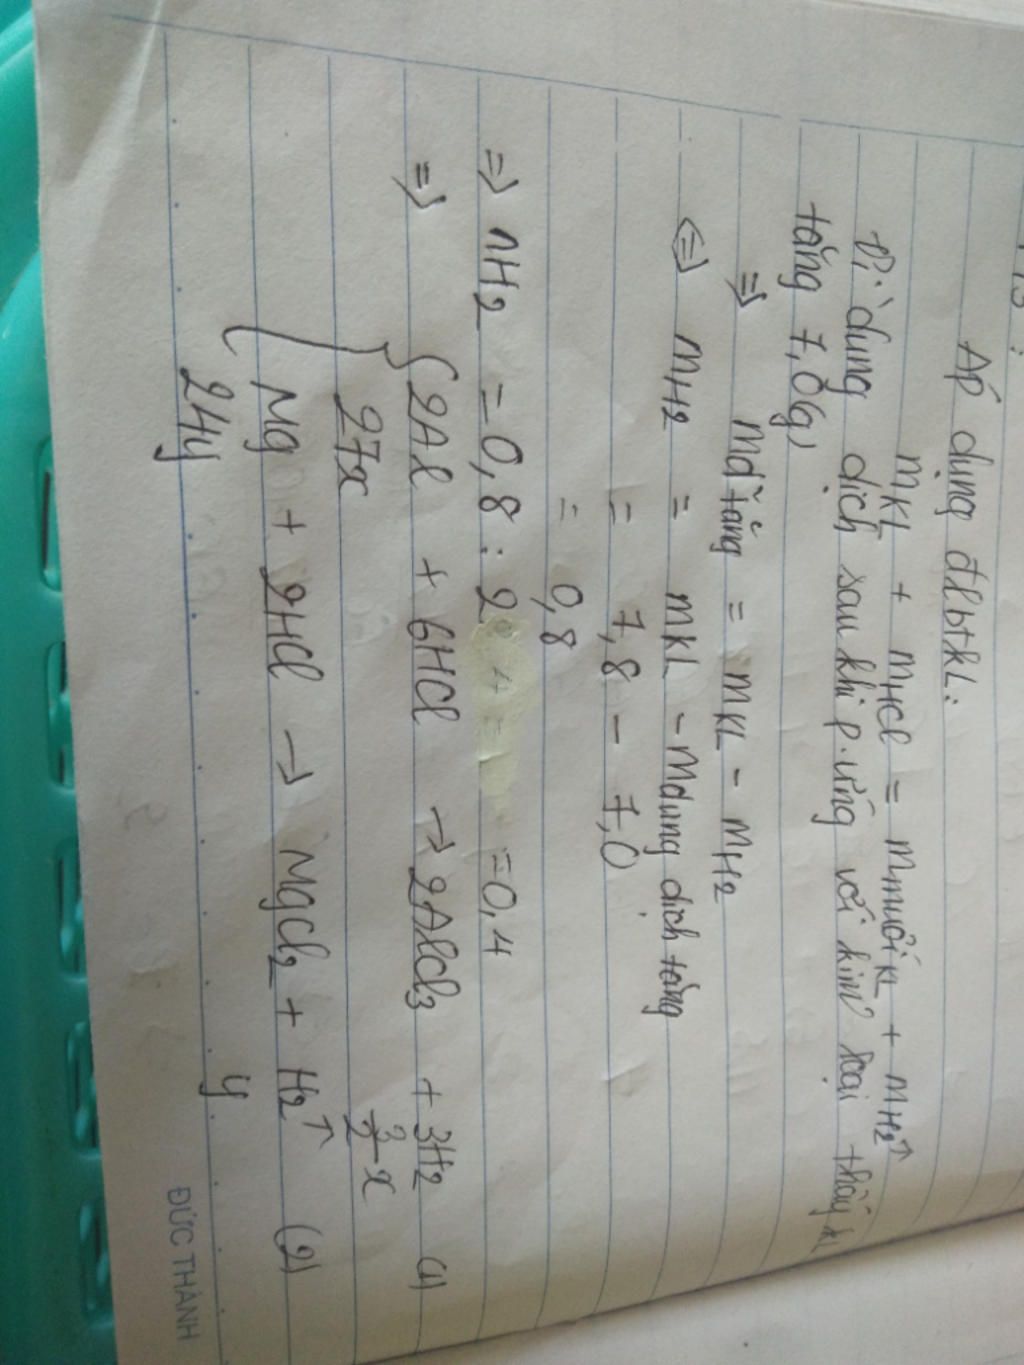 Áp dụng đlbtkL:
mKL + mHCl = mmuối KL + mH2↑
Vì dung dịch sau khi p.ứng với kim loại thấy kL
tăng 7,0(g)
=> md² tăng = mKL - mH2
<=> mH2 = mKL - mdung dịch tăng
= 7,8 - 7,0
= 0,8
=> nH2 = 0,8 : 2 = 0,4
=> 2Al + 6HCl → 2AlCl3 + 3H2 (1)
27x 3/2 x
Mg + 2HCl → MgCl2 + H2↑ (2)
24y y
ĐỨC THÀNH